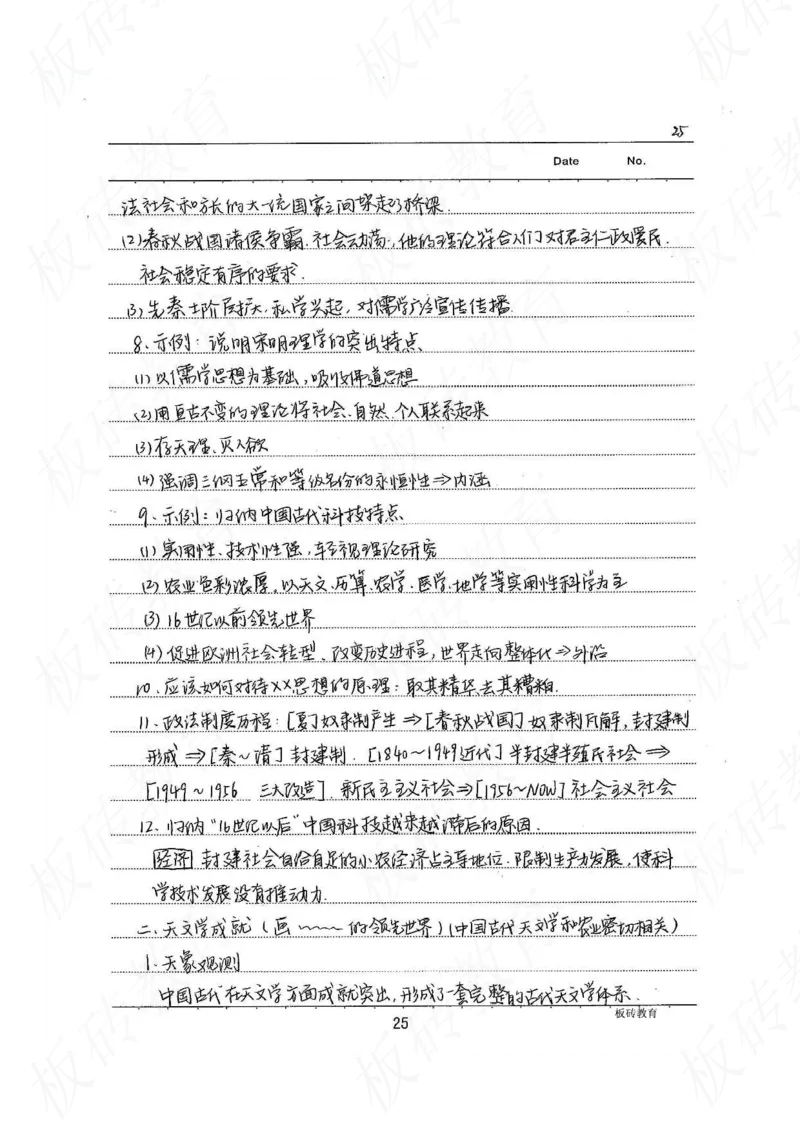 25
Date No.
法社会和方长的大一统国家之间架起了桥梁.
(2)春秋战国诸侯争霸.社会动荡,他的理论符合人们对君主仁政爱民.
社会稳定有序的要求.
(3)先秦士阶层扩大,私学兴起,对儒学广泛宣传传播.
8、示例:说明宋明理学的突出特点
(1)以儒学思想为基础,吸收佛道思想
(2)用亘古不变的理论将社会、自然、个人联系起来
(3)存天理、灭人欲
(4)强调三纲五常和等级名份的永恒性⇒内涵
9、示例:归纳中国古代科技特点
(1)实用性、技术性强,轻视理论研究
(2)农业色彩浓厚,以天文、历算、农学、医学、地学等实用性科学为主
(3)16世纪以前领先世界
(4)促进欧洲社会转型、改变历史进程,世界走向整体化⇒外沿
10、应该如何对待XX思想的原理:取其精华,去其糟粕.
11、政法制度历程:[夏]奴隶制产生⇒[春秋战国]奴隶制瓦解,封建制
形成⇒[秦~清]封建制.[1840~1949近代]半封建半殖民社会⇒
[1949~1956 三大改造].新民主主义社会⇒[1956~NOW]社会主义社会
12、归纳"16世纪以后"中国科技越来越滞后的原因.
经济 封建社会自给自足的小农经济占主导地位.限制生产力发展,使科
学技术发展没有推动力.
二、天文学成就(画~~~~的领先世界)(中国古代天文学和农业密切相关)
1.天象观测
中国古代在天文学方面成就突出,形成了一套完整的古代天文学体系.
板砖教育
25
板砖教育